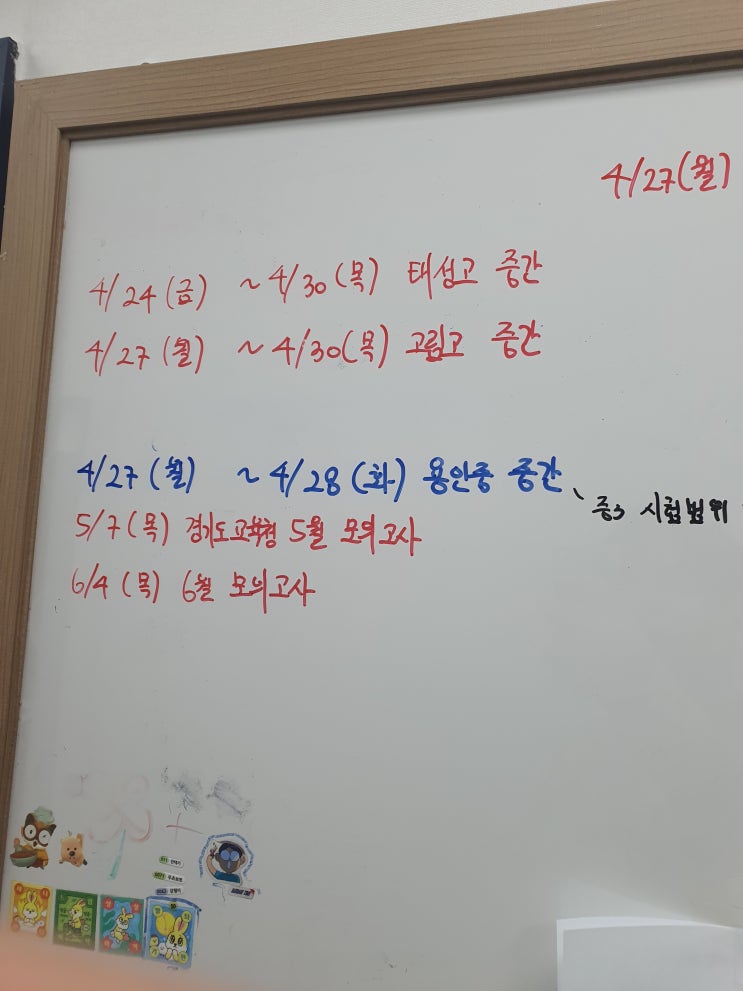 4/27(월)
4/24(금) ~4/30(목) 태성고 중간
4/27(월) ~4/30(목) 고림고 중간
4/27(월) ~4/28(화) 용인중 중간
중3 시험범위
5/7(목) 경기도교육청 5월 모의고사
6/4(목) 6월 모의고사